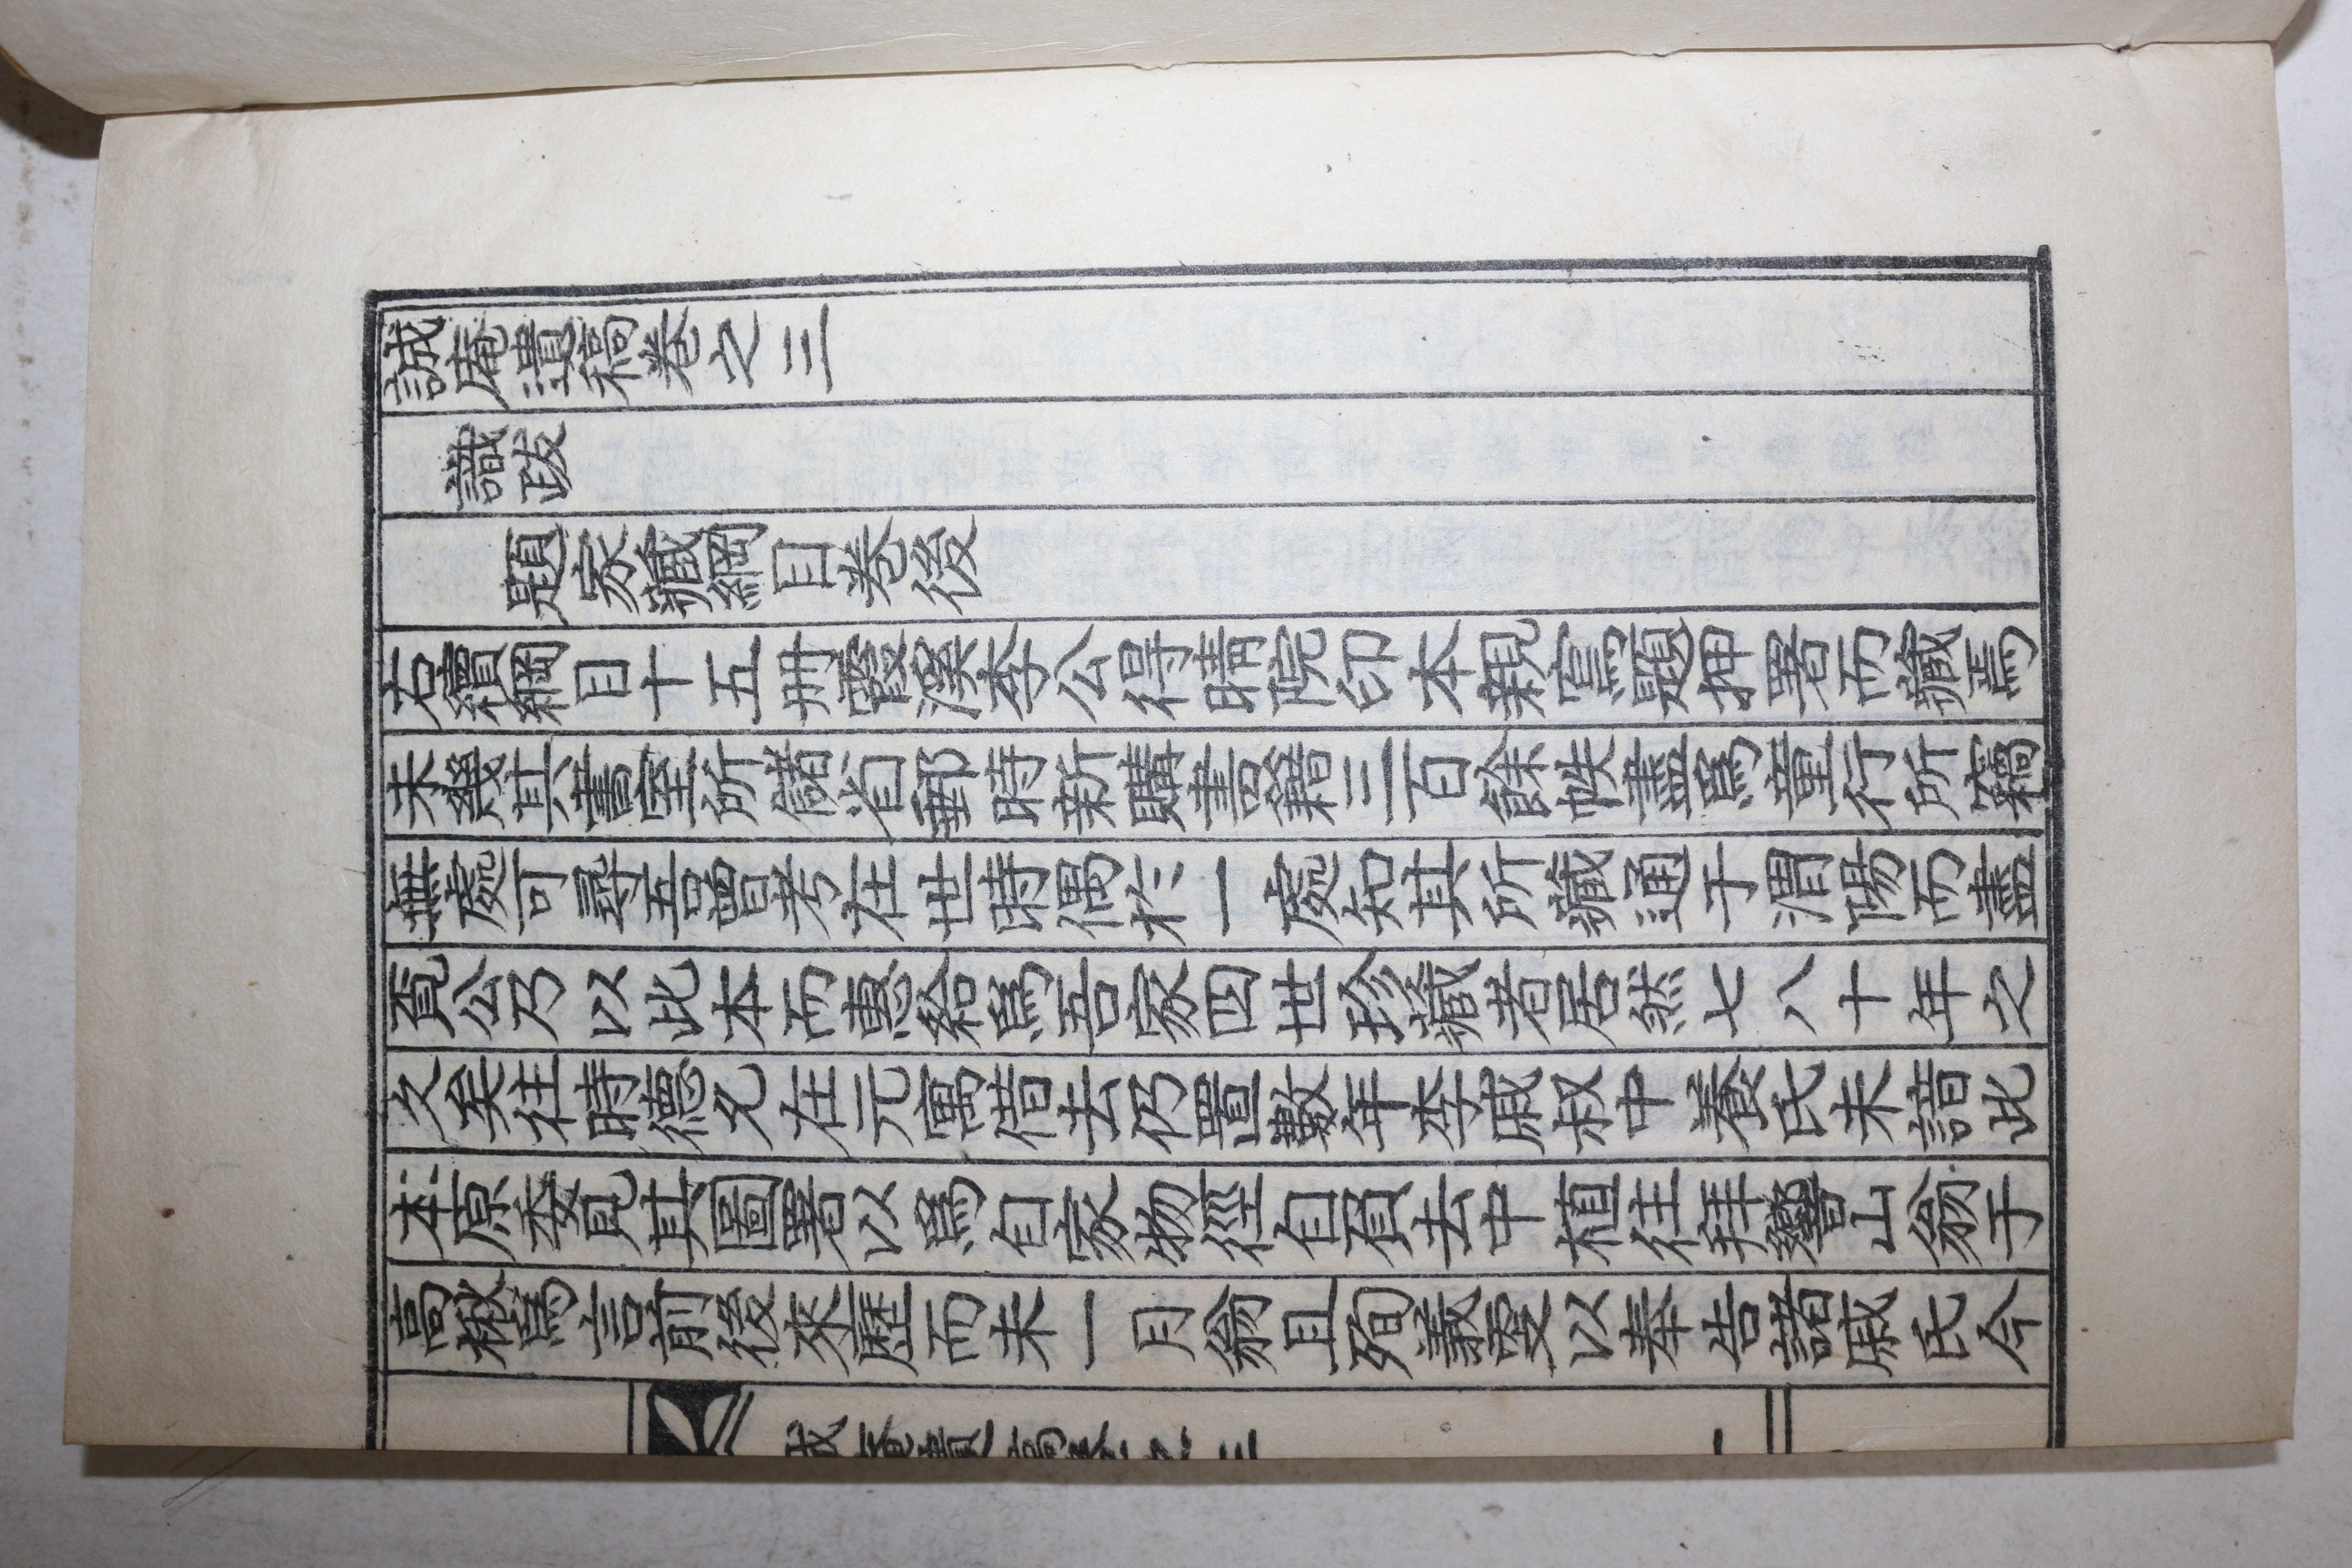 誠庵遺稿卷之三
識跋
題家藏綱目卷後
右續綱目十五册霞溪李公得晴院印本親寫題押署而藏焉
未幾其書室所儲省郵時新購書籍三百餘帙盡爲童行所竊
無處可尋吾曾考在世時偶於一處知其所藏通于渭陽而盡
覓公乃以此本而惠給爲吾家四世珍藏者居然七八十年之
久矣往時德允在元寓借去仍置數年李戚叔中養氏未諳此
本原委見其圖署以爲自家物徑自負去中植往拜響山翁于
高楸爲言前後來歷而未一月翁且殉義雯以奉告諸戚氏今
誠庵遺稿卷之三
一